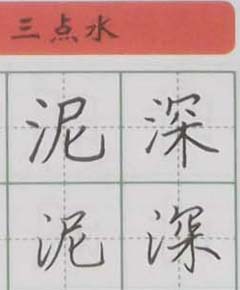 三点水
泥深
泥深